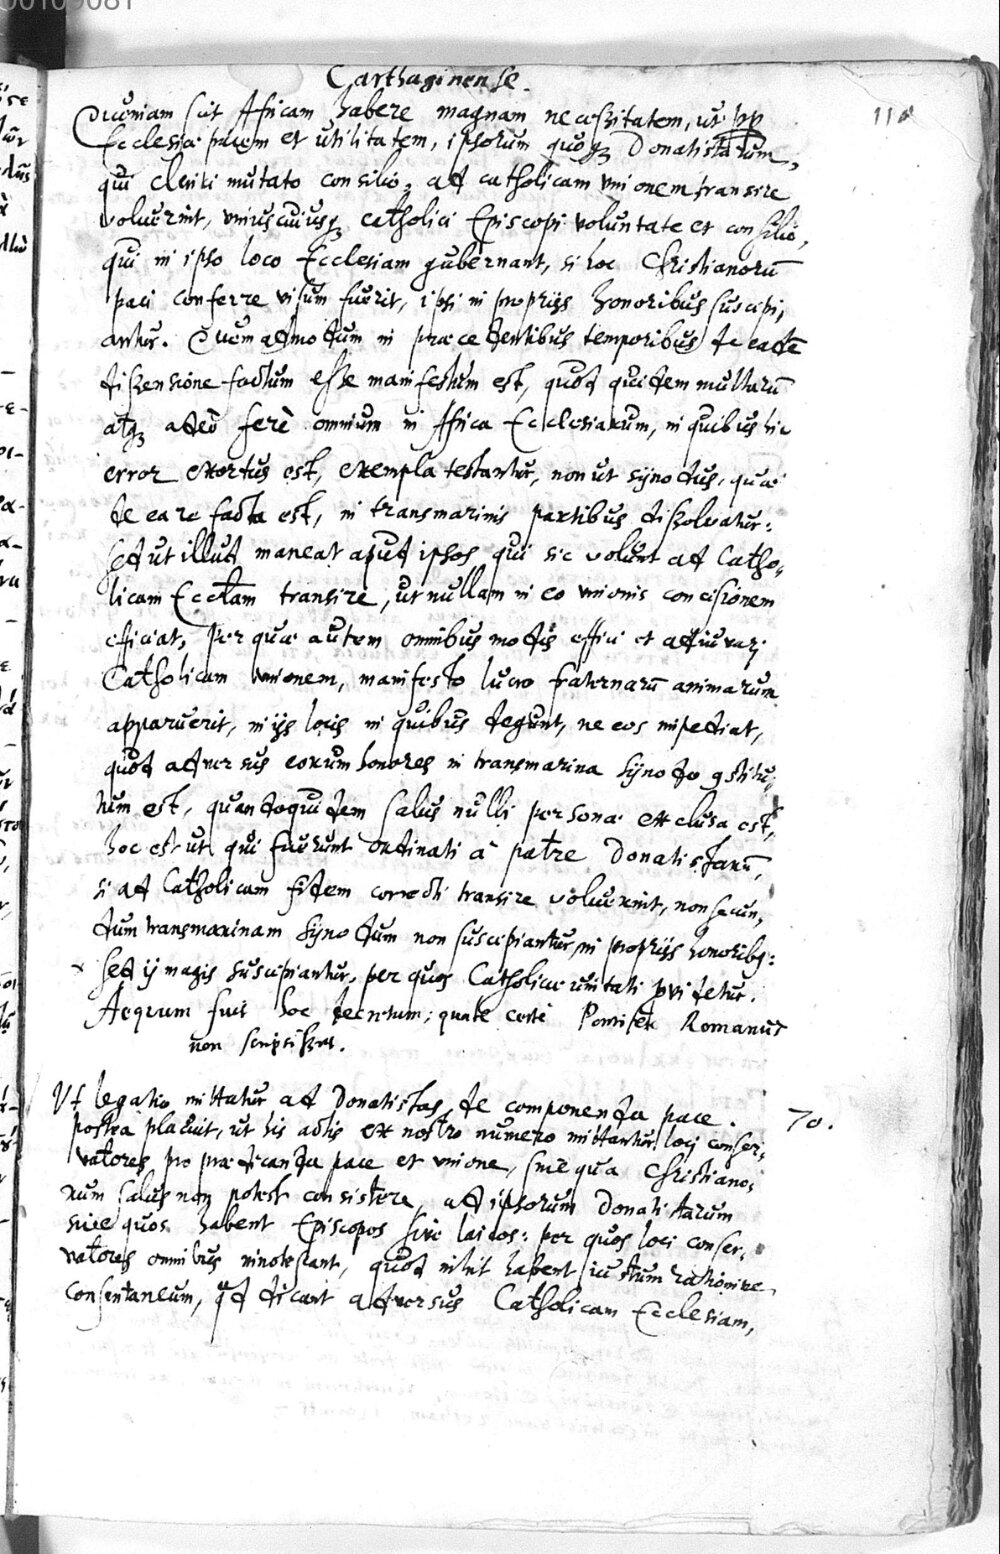 00109081
Carthaginense.
110
Quoniam scit Africam habere magnam necessitatem, ut pp
Ecclesiæ pacem et utilitatem, ipsorum quoq3 Donatistarum,
qui clerici mutato consilio, ad catholicam unionem transire
voluerint, uniuscuiusq3 catholici Episcopi voluntate et consilio,
qui in ipso loco Ecclesiam gubernant, si hoc Christianorū
paci conferre visum fuerit, ipsi in proprijs honoribus suscipi,
antur. Quemadmodum in præcedentibus temporibus de eadē
dissensione factum esse manifestum est, quod quidem multarū
atq3 adeò ferè omnium in Africa Ecclesiarum, in quibus hic
error exortus est, exempla testantur, non ut synodus, quæ
de ea re facta est, in transmarinis partibus dissolvatur:
sed ut illud maneat apud ipsos qui sic volunt ad Catho,
licam Ecctam transire, ut nullam in eo unionis concisionem
efficiat, per quæ autem omnibus modis effici et adiuvari
Catholicam unionem, manifesto lucro fraternarū animarum
apparuerit, in ijs locis in quibus degunt, ne eos impediat,
quod adversus eorum honores in transmarina synodo 9stitu,
tum est, quandoquidem salus nulli personæ exclusa est,
hoc est ut qui fuerunt ordinati à patre Donatistarū,
si ad Catholicam fidem correcti transire voluerint, non secun,
dum transmarinam synodum non suscipiantur in proprijs honorib9:
sed ij magis suscipiantur, per quos Catholicæ unitati providetur.
Aequum fuit hoc decretum; quale certè Pontifex Romanus
non scripsisset.
Ut legatio mittatur ad Donatistas, de componenda pace.
70.
postea placuit, ut his actis ex nostro numero mittantur loci conser,
vatores pro prædicanda pace et unione, sine qua Christiano,
rum salus non potest consistere ad ipsorum Donatistarum
sive quos habent Episcopos sive laicos: per quos loci conser,
vatores omnibus innotescant, quod nihil habent iustum rationive
consentaneum, qd dicant adversus Catholicam Ecclesiam,